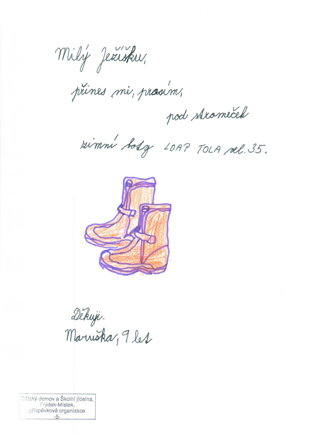 Milý Ježíšku,
přines mi, prosím,
pod stromeček
zimní boty LOAP TOLA vel. 35.
Děkuji.
Maruška, 9 let
Dětský domov a Školní jídelna,
Frýdek-Místek,
příspěvková organizace
-5-